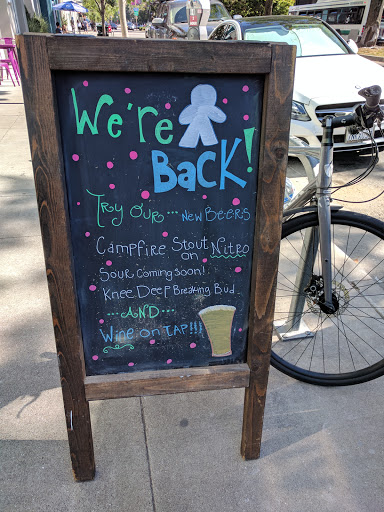 We're
Back!
Try our... New Beers
Campfire Stout
on Nitro
Sour Coming Soon!
Knee Deep Breaking Bud
...AND...
Wine on TAP!!!